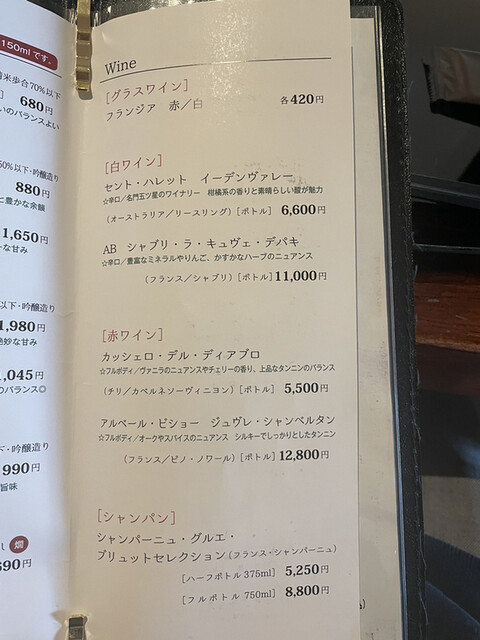 150mlです。
米歩合70%以下
680円
いのバランスよい
50%以下・吟醸造り
880円
に豊かな余韻
1,650円
な甘み
以下・吟醸造り
1,980円
絶妙な甘み
1,045円
のバランス◎
下・吟醸造り
990円
旨味
し 燗
690円
Wine
[グラスワイン]
フランジア 赤／白 各420円
[白ワイン]
セント・ハレット イーデンヴァレー
☆辛口／名門五ツ星のワイナリー 柑橘系の香りと素晴らしい酸が魅力
(オーストラリア／リースリング) [ボトル] 6,600円
AB シャブリ・ラ・キュヴェ・デパキ
☆辛口／豊富なミネラルやりんご、かすかなハーブのニュアンス
(フランス／シャブリ) [ボトル] 11,000円
[赤ワイン]
カッシェロ・デル・ディアブロ
☆フルボディ／ヴァニラのニュアンスやチェリーの香り、上品なタンニンのバランス
(チリ／カベルネソーヴィニヨン) [ボトル] 5,500円
アルベール・ビショー ジュヴレ・シャンベルタン
☆フルボディ／オークやスパイスのニュアンス シルキーでしっかりとしたタンニン
(フランス／ピノ・ノワール) [ボトル] 12,800円
[シャンパン]
シャンパーニュ・グルエ・
ブリュットセレクション (フランス・シャンパーニュ)
[ハーフボトル 375ml] 5,250円
[フルボトル 750ml] 8,800円